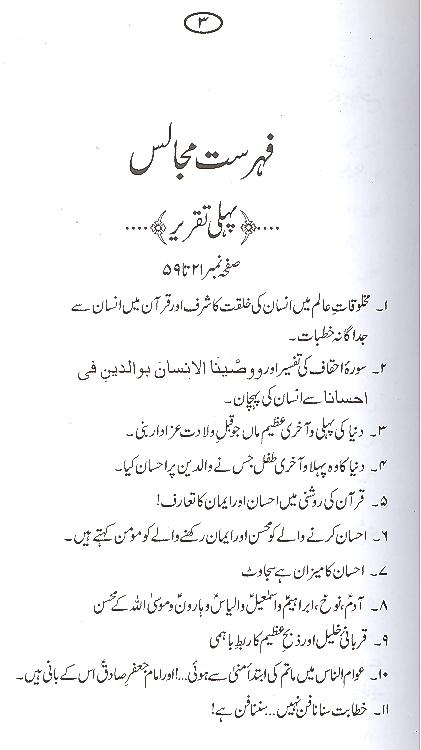 ۳
فہرست مجالس
پہلی تقریر
صفحہ نمبر ۲۱ تا ۵۹
۱۔ مخلوقاتِ عالم میں انسان کی خلقت کا شرف اور قرآن میں انسان سے
جداگانہ خطبات۔
۲۔ سورۂ احقاف کی تفسیر اور ووصّینا الانسان بوالدین فی
احسانا سے انسان کی پہچان۔
۳۔ دنیا کی پہلی و آخری عظیم ماں جو قبلِ ولادت عزادار بنی۔
۴۔ دنیا کا وہ پہلا و آخری طفل جس نے والدین پر احسان کیا۔
۵۔ قرآن کی روشنی میں احسان اور ایمان کا تعارف!
۶۔ احسان کرنے والے کو محسن اور ایمان رکھنے والے کو مومن کہتے ہیں۔
۷۔ احسان کا میزان ہے سجاوٹ
۸۔ آدمؑ، نوحؑ، ابراہیمؑ و اسمٰعیلؑ و الیاسؑ و ہارونؑ و موسیٰؑ اللہ کے محسن
۹۔ قربانیٔ خلیل اور ذبحِ عظیم کا ربطِ باہمی
۱۰۔ عوام الناس میں ماتم کی ابتدا منیٰ سے ہوئی...! اور امام جعفر صادقؑ اس کے بانی ہیں۔
۱۱۔ خطابت سنانا فن نہیں... سننا فن ہے!